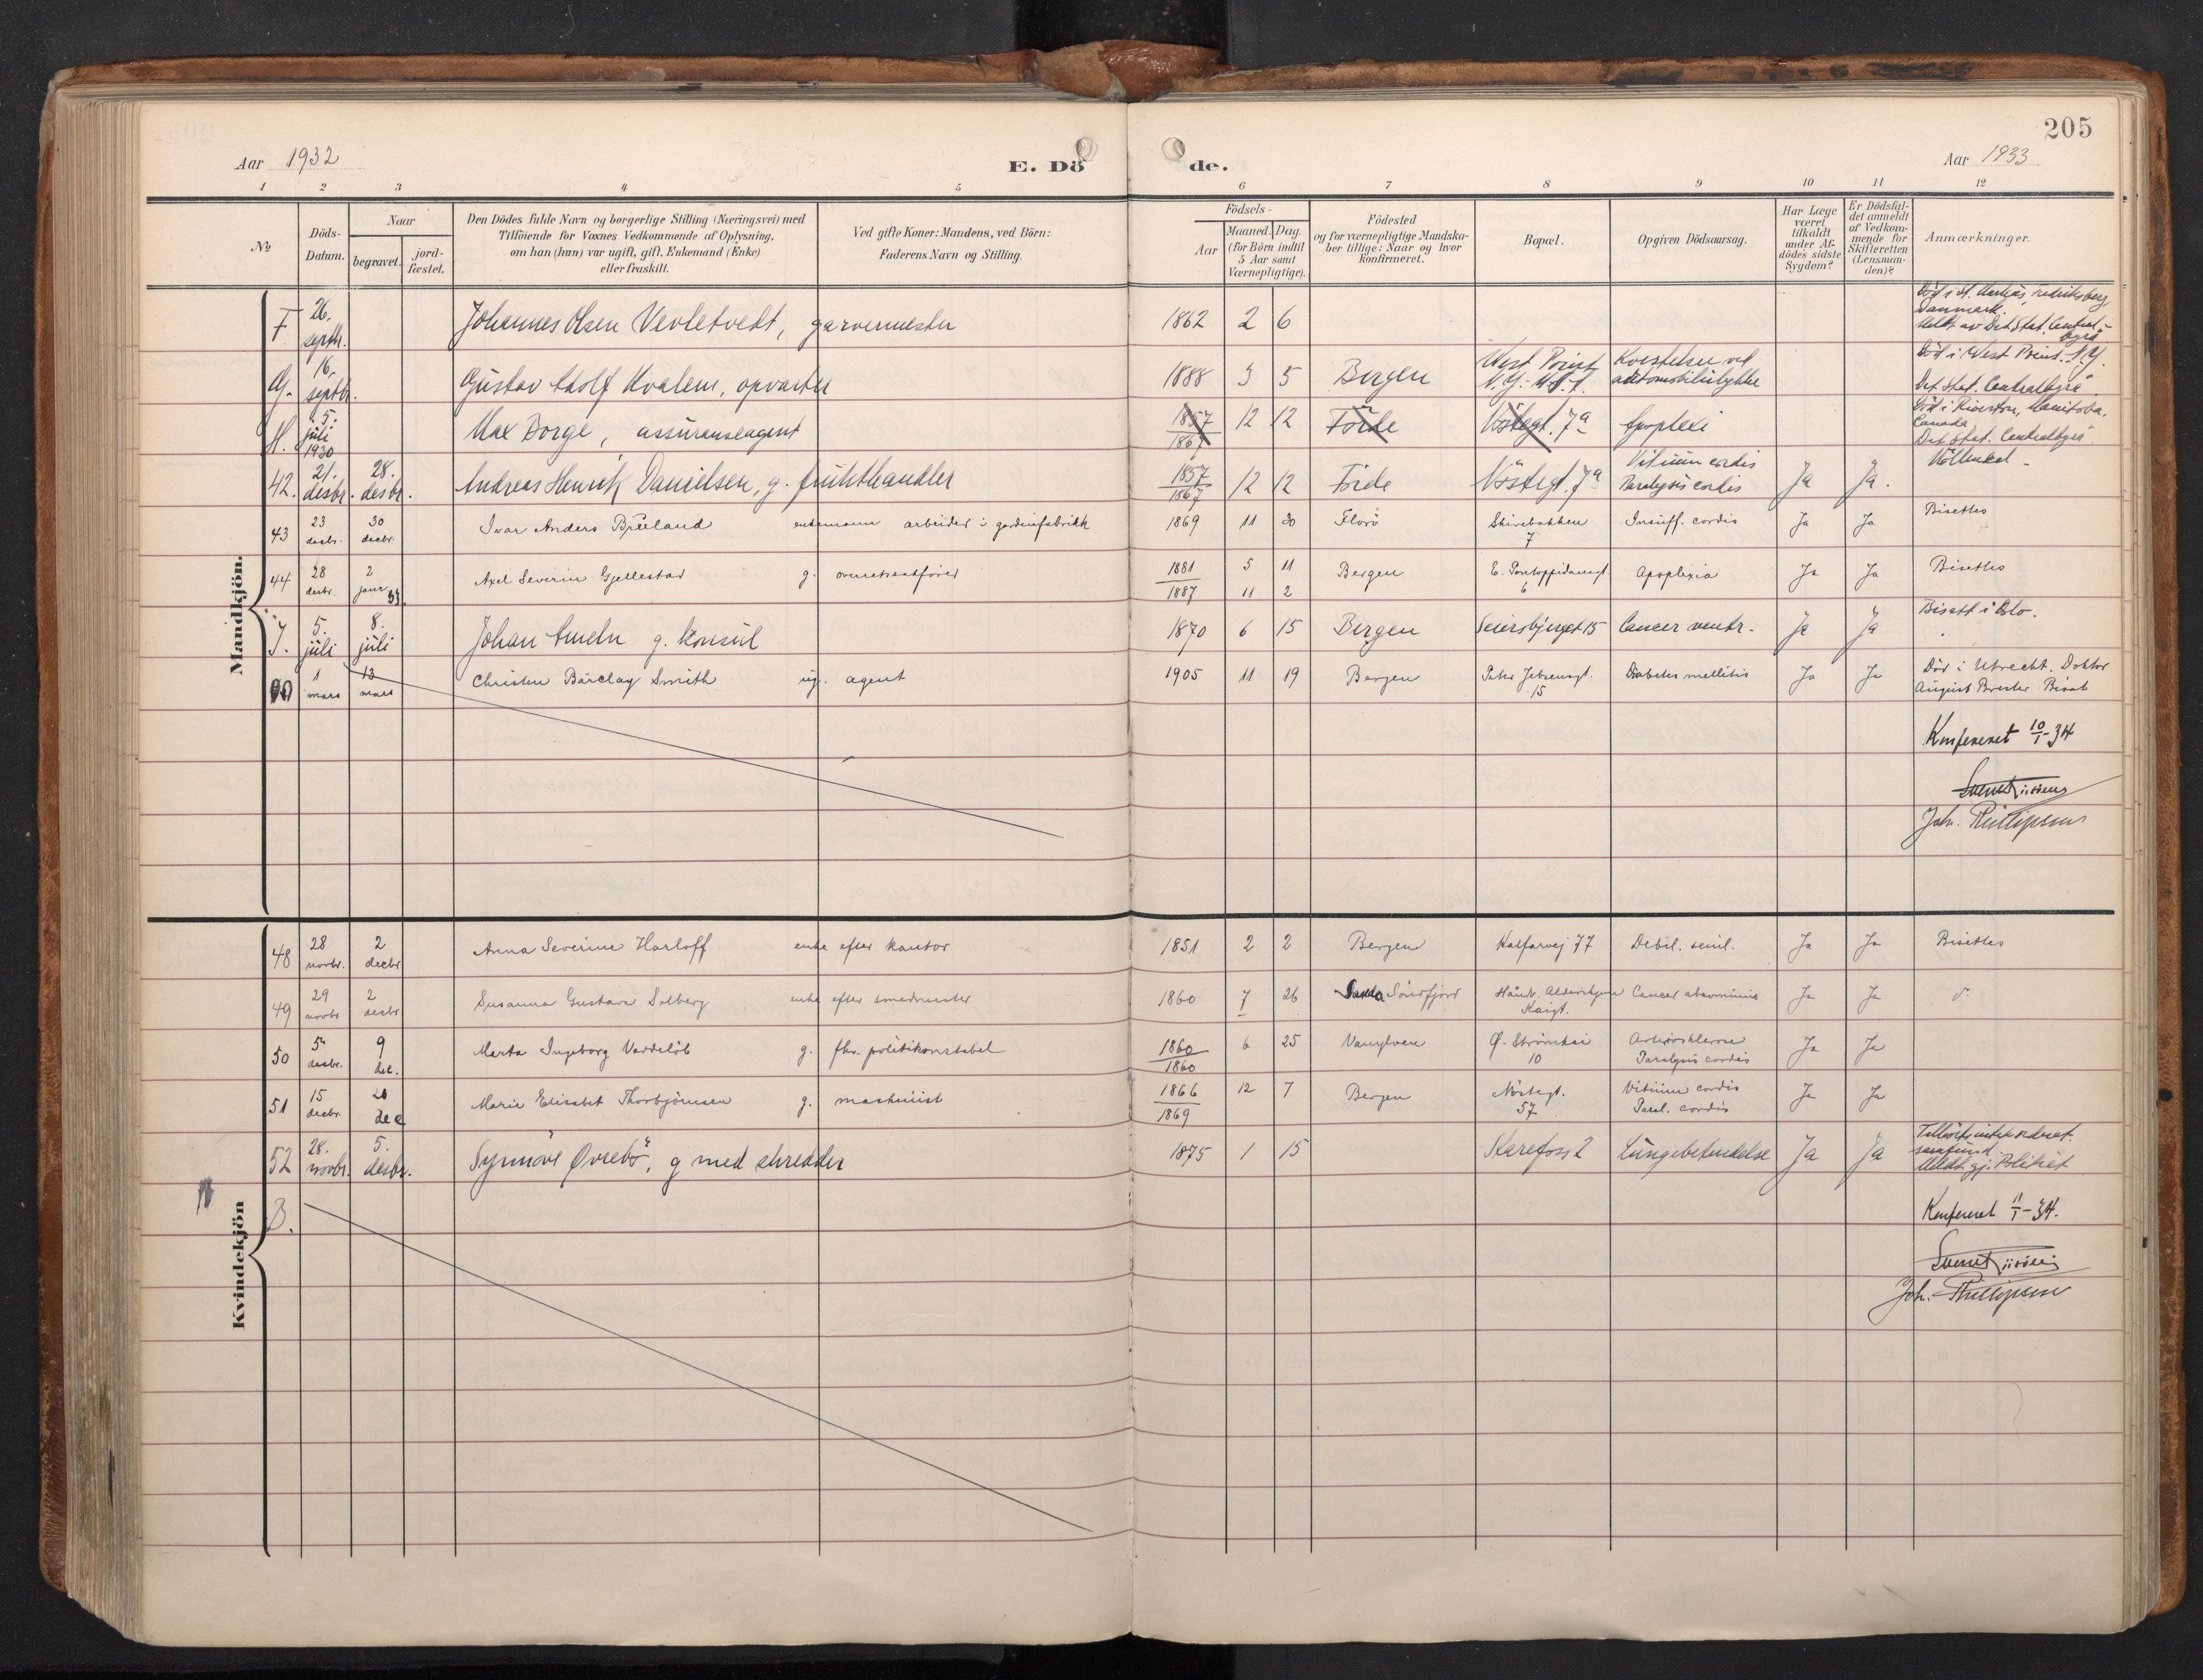 205
Aar 1932
E. Dö
de.
Aar 1933
1 2 3 4 5 6 7 8 9 10 11 12
No
Döds-Datum.
Naar
begravet.
jord-fæstet.
Den Dödes fulde Navn og borgerlige Stilling (Næringsvei) med
Tilföiende for Voxnes Vedkommende af Oplysning,
om han (hun) var ugift, gift, Enkemand (Enke)
eller fraskilt.
Ved gifte Koner: Mandens, ved Börn:
Faderens Navn og Stilling.
Födsels-
Aar
Maaned. Dag.
(for Börn indtil
5 Aar samt
Værnepligtige).
Födested
og for værnepligtige Mandska-
ber tillige: Naar og hvor
konfirmeret.
Bopæl.
Opgiven Dödsaarsag.
Har Læge
været
tilkaldt
under Af-
dödes sidste
Sygdom?
Er Dödsfal-
det anmeldt
af Vedkom-
mende for
Skifteretten
(Lensman-
den)?
Anmærkninger.
Mandkjön.
F 26. septbr. Johannes Olsen Vevletvedt, garvermester 1862 2 6 Död i Fredriksberg
Danmark.
av Det Stat. Central-
byrå
G. 16. septbr. Gustav Adolf Kvalem, opvarter 1888 3 5 Bergen West Point N.Y. U.S.A. Kvestelser ved automobilulykke Död i West Point. N.Y.
Det Stat. Centralbyrå
H. 5. juli 1930 Max Borge, assuranseagent 1857 1867 12 12 Förde Nöstegt. 7a Apoplexi Död i Riverton, Manitoba,
Canada
Det Stat. Centralbyrå.
42. 21. desbr. 28. desbr. Andreas Henrik Danielsen, g. frukthandler 1857 1867 12 12 Förde Nöstegt. 7a Vitium cordis Paralysis cordis Ja Ja. Möllendal
43 23 desbr. 30 decbr. Ivar Anders Bjelland enkemann arbeider i gardinfabrikk 1869 11 30 Florö Skivebakken 7 Insuff. cordis Ja Ja Bisettes
44 28 desbr. 2 januar 33. Axel Severin Gjellestad g. overretssakförer 1881 5 11
1887 11 2 Bergen E. Pontoppidansgt. 6 Apoplexia Ja Ja Bisettes
J. 5. juli 8. juli Johan Ameln g. konsul 1870 6 15 Bergen Seiersbjerget 15 Cancer ventr. Ja Ja Bisatt i Oslo.
1 mars 13 mars Christen Barclay Smith ug. agent 1905 11 19 Bergen Peter Jebsensgt. 15 Diabetes mellitis Ja Ja Död i Utrecht. Doktor
August Brester Bisat
Konfereret 10/1-34
Joh. Phillipsen
Kvindekjön
48 28 novbr. 2 decbr Anna Severine Harloff enke efter kantor 1851 2 2 Bergen Kalfarvej 77 Debil. senil. Ja Ja Bisettes
49 29 novbr 2 desbr Susanna Gustava Solberg enke efter smedmester 1860 7 26 Söndfjord Håndv. Aldershjem Kaigt. Cancer abdominis Ja Ja
50 5 desbr. 9 dec. Marta Ingeborg Vaddelöb g. fhv. politikonstabel 1860 1860 6 25 Vanylven Ø. Strömkai 10 Arteriosklerose Paralysis cordis Ja Ja
51 15 decbr. 20 dec Marie Elisabet Thorbjörnsen g. maskinist 1866 1869 12 7 Bergen Nöstegt. 57 Vitium cordis Paral. cordis Ja Ja
52 28. novbr. 5. desbr. Synnöve Øvrebö, g med skredder 1875 1 15 Skarefoss 2 Lungebetendelse Ja Ja
samfund
Meldt gj. Politiet
B. Konfereret 11/1-34.
Joh. Phillipsen